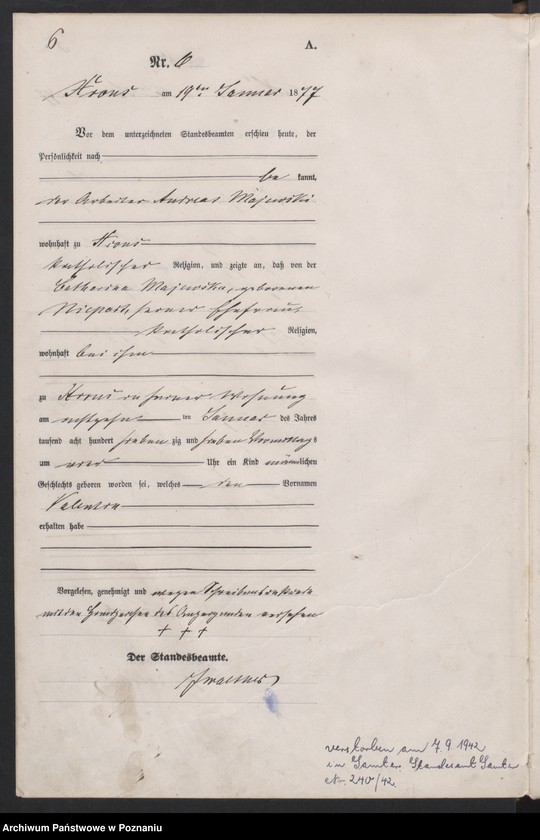 6
A.
Nr. 6
am 19ten Januar 1877
Vor dem unterzeichneten Standesbeamten erschien heute, der
Persönlichkeit nach
be kannt,
der Arbeiter Andreas Majewski
wohnhaft zu
katholischer Religion, und zeigte an, daß von der
Catharina Majewska, geborenen
seiner Ehefrau,
katholischer Religion,
wohnhaft bei ihm
zu in seiner Wohnung
am achtzehn ten Januar des Jahres
tausend acht hundert sieben zig und sieben Vormittags
um Uhr ein Kind männlichen
Geschlechts geboren worden sei, welches den Vornamen
Valentin
erhalten habe
Vorgelesen, genehmigt und wegen Schreibensunkunde
mit den Handzeichen des Anzeigenden versehen
+ + +
Der Standesbeamte.
verstorben am 7.9.1942
in Samter. Standesamt Samter
Nr. 240/42.
Archiwum Państwowe w Poznaniu